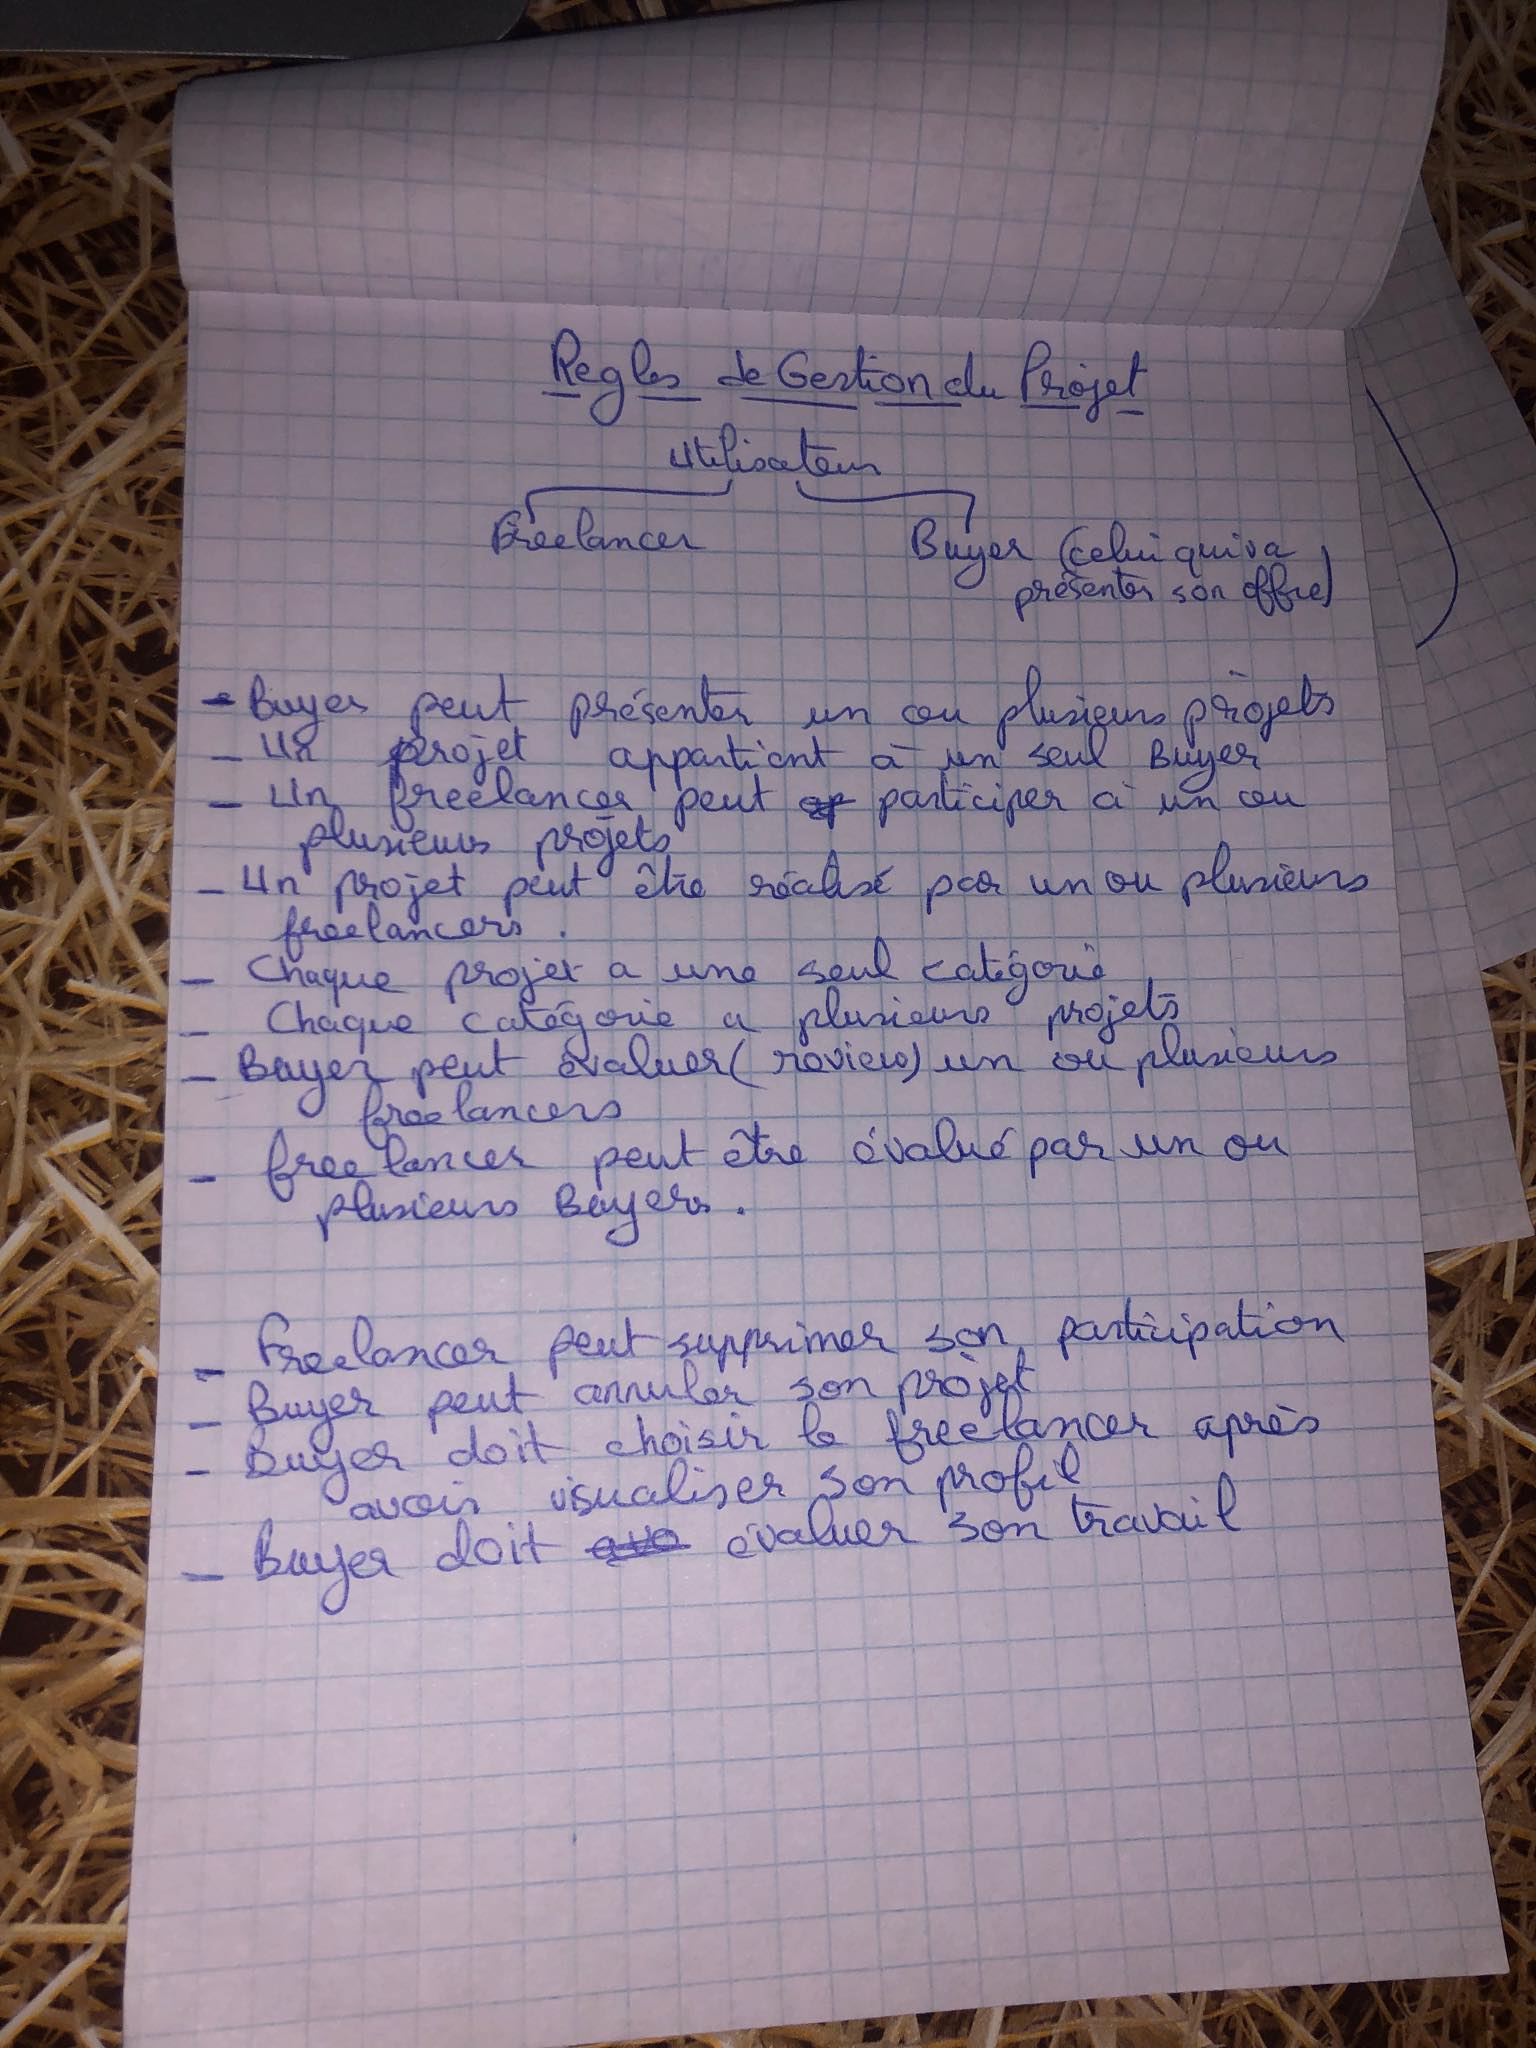 Regles de Gestion du Projet
Utilisateur
Freelancer Buyer (celui qui va
présenter son offre)
- Buyer peut présenter un ou plusieurs projets
- Un projet appartient à un seul Buyer
- Un freelancer peut participer à un ou
plusieurs projets
- Un projet peut être réalisé par un ou plusieurs
freelancers.
- Chaque projet a une seul catégorie
- Chaque catégorie a plusieurs projets
- Buyer peut évaluer (review) un ou plusieurs
freelancers
- freelancer peut être évalué par un ou
plusieurs Buyers.
- Freelancer peut supprimer son participation
- Buyer peut annuler son projet
- Buyer doit choisir le freelancer après
avoir visualiser son profil
- Buyer doit évaluer son travail